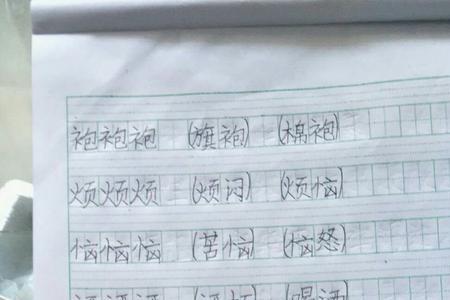 袍袍袍 (旗袍) (棉袍)
烦烦烦 (烦闷) (烦恼)
恼恼恼 (苦恼) (恼怒)